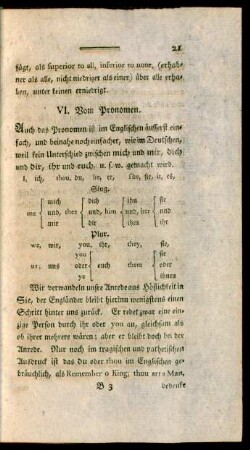 21
fügt, als superior to all, inferior to none, (erhab-
ner als alle, nicht niedriger als einer; über alle erha-
ben, unter keinen erniedrigt.
VI. Vom Pronomen.
Auch das Pronomen ist im Englischen äusserst ein-
fach, und beinahe noch einfacher, wie im Deutschen,
weil kein Unterschied zwischen mich und mir, dich
und dir, ihr und euch u. s. w. gemacht wird.
I, ich, thou, du, he, er, she, sie, it, es,
Sing.
mich dich ihn sie
me und, thee und, him und, her und
mir dir ihm ihr
Plur.
we, wir, you, ihr, they, sie,
you euch sie
us; uns oder euch them
ye ihnen
Wir verwandeln unsre Anrede aus Höflichkeit in
Sie, der Engländer bleibt hierinn wenigstens einen
Schritt hinter uns zurück. Er redet zwar eine ein-
zige Person durch ihr oder you an, gleichsam als
ob ihrer mehrere wären; aber er bleibt doch bei der
Anrede. Nur noch im tragischen und pathetischen
Ausdruck ist das du oder thou im Englischen ge-
bräuchlich, als Remember o King; thou art a Man,
B 3 bedenke